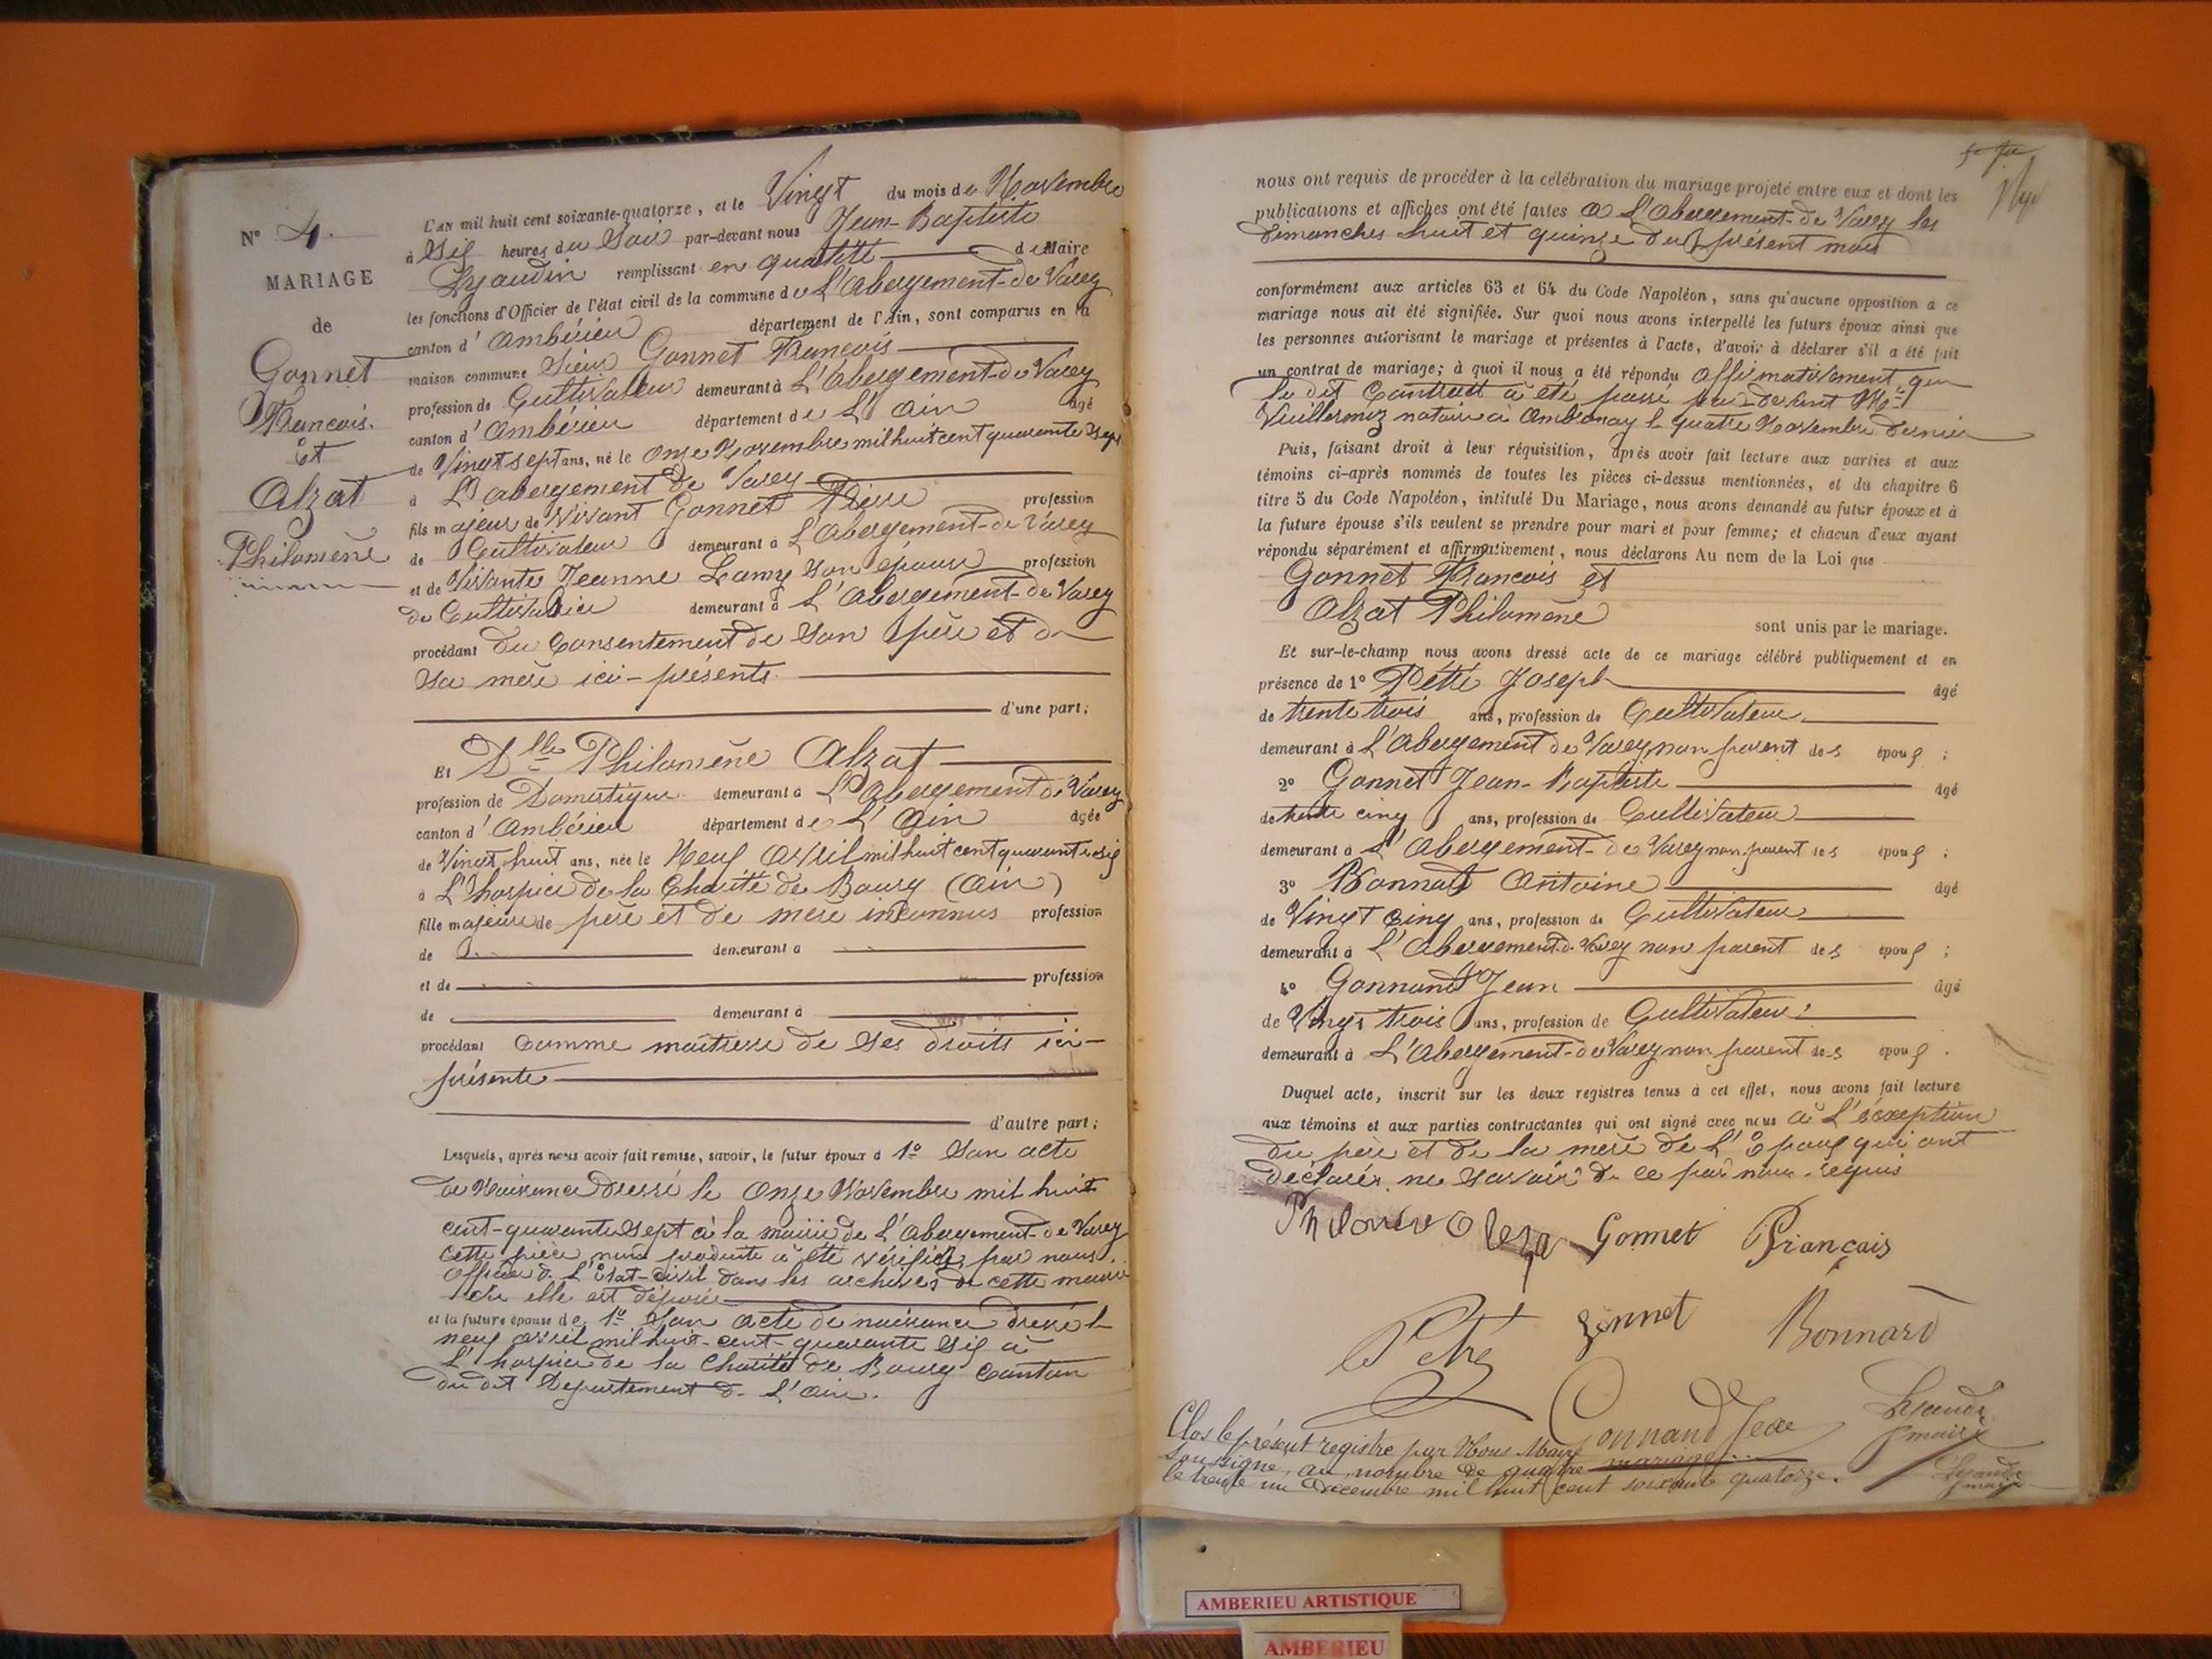 N° 4.
MARIAGE
de
Gonnet
François.
Et
Alzat
Philomène
L'AN mil huit cent soixante-quatorze, et le Vingt du mois de Novembre
à Six heures du Soir par-devant nous Jean-Baptiste
remplissant en qualité de Maire
les fonctions d'Officier de l'état civil de la commune de L'Abergement-de Varey
canton d'Ambérieu département de l'Ain, sont comparus en la
maison commune Sieur Gonnet François
profession de Cultivateur demeurant à L'Abergement-de Varey
canton d'Ambérieu département de L'Ain âgé
de Vingt sept ans, né le Onze Novembre mil huit cent quarante Sept
à L'abergement de Varey
fils majeur de Vivant Gonnet Pierre profession
de Cultivateur demeurant à L'Abergement-de Varey
et de Vivante Jeanne Lamy son épouse profession
de Cultivatrice demeurant à L'Abergement-de Varey
procédant du Consentement de Son père et de
Sa mère ici-présents.
d'une part;
Et Dlle Philomène Alzat
profession de Domestique demeurant à L'Abergement de Varey
canton d'Ambérieu département de L'Ain âgée
de Vingt huit ans, née le Neuf Avril mil huit cent quarante six
à L'hospice de la Charité de Bourg (Ain)
fille majeure de père et de mère inconnus profession
de demeurant à
et de profession
de demeurant à
procédant Comme maîtresse de Ses droits ici-
présente
d'autre part;
Lesquels, après nous avoir fait remise, savoir, le futur époux d 1° Son acte
de Naissance Dressé le Onze Novembre mil huit
cent-quarante Sept à la mairie de L'Abergement-de Varey
cette pièce non produite à été vérifiée par nous
Officier de L'Etat-civil dans les archives de cette mairie
où elle est déposée
et la future épouse de 1° Son acte de naissance dressé le
neuf avril mil huit-cent-quarante Six à
L'hospice de la Charité de Bourg Canton
du dit Département de L'Ain.
nous ont requis de procéder à la célébration du mariage projeté entre eux et dont les
publications et affiches ont été faites à L'Abergement-de Varey les
Dimanches huit et quinze du présent mois
conformément aux articles 63 et 64 du Code Napoléon, sans qu'aucune opposition à ce
mariage nous ait été signifiée. Sur quoi nous avons interpellé les futurs époux ainsi que
les personnes autorisant le mariage et présentes à l'acte, d'avoir à déclarer s'il a été fait
un contrat de mariage; à quoi il nous a été répondu affirmativement que
le dit Contratt à été passé par-devant Me
Vuillermoz notaire à Ambronay le quatre Novembre dernier
Puis, faisant droit à leur réquisition, après avoir fait lecture aux parties et aux
témoins ci-après nommés de toutes les pièces ci-dessus mentionnées, et du chapitre 6
titre 5 du Code Napoléon, intitulé Du Mariage, nous avons demandé au futur époux et à
la future épouse s'ils veulent se prendre pour mari et pour femme; et chacun d'eux ayant
répondu séparément et affirmativement, nous déclarons Au nom de la Loi que
Gonnet François et
Alzat Philomène
sont unis par le mariage.
Et sur-le-champ nous avons dressé acte de ce mariage célébré publiquement et en
présence de 1° Joseph âgé
de trente trois ans, profession de Cultivateur
demeurant à L'Abergement de Varey, non parent des époux ;
2° Gonnet Jean-Baptiste âgé
de trente cinq ans, profession de Cultivateur
demeurant à L'Abergement-de Varey non parent des époux ;
3° Antoine âgé
de Vingt Cinq ans, profession de Cultivateur
demeurant à L'Abergement-de Varey non parent des époux ;
4° Gonnand Jean âgé
de Vingt trois ans, profession de Cultivateur
demeurant à L'Abergement-de Varey non parent des époux .
Duquel acte, inscrit sur les deux registres tenus à cet effet, nous avons fait lecture
aux témoins et aux parties contractantes qui ont signé avec nous à L'éxception
du père et de la mère de L'Epoux qui ont
déclarés ne Savoir de ce par nous requis
Gonnet François
Petre
Bonnard
Gonnand Jean
maire
Clos le présent registre par Nous Maire
soussigné, au nombre de quatre mariages
le trente un Décembre mil huit cent soixante quatorze.
maire
AMBERIEU ARTISTIQUE
AMBERIEU